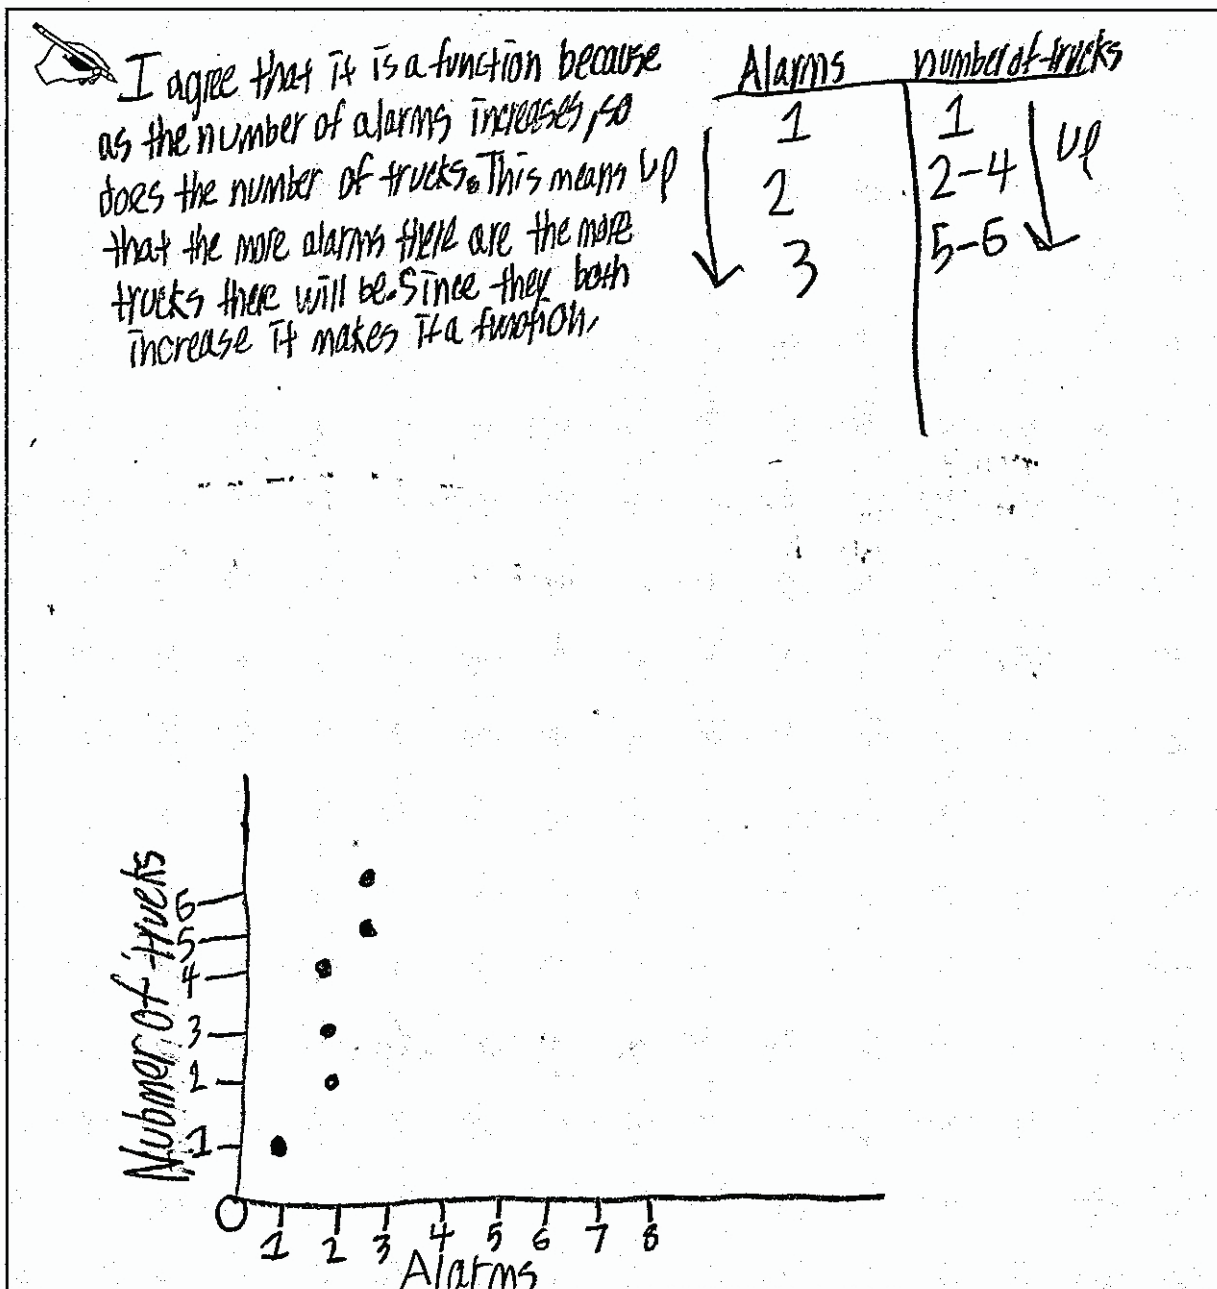 I agree that it is a function because
as the number of alarms increases, so
does the number of trucks. This means
that the more alarms there are the more
trucks there will be. Since they both
increase it makes it a function.
Alarms number of trucks
1 1
2 2-4
3 5-6
up
up
Nubmer of trucks
6
5
4
3
2
1
0
1 2 3 4 5 6 7 8
Alarms